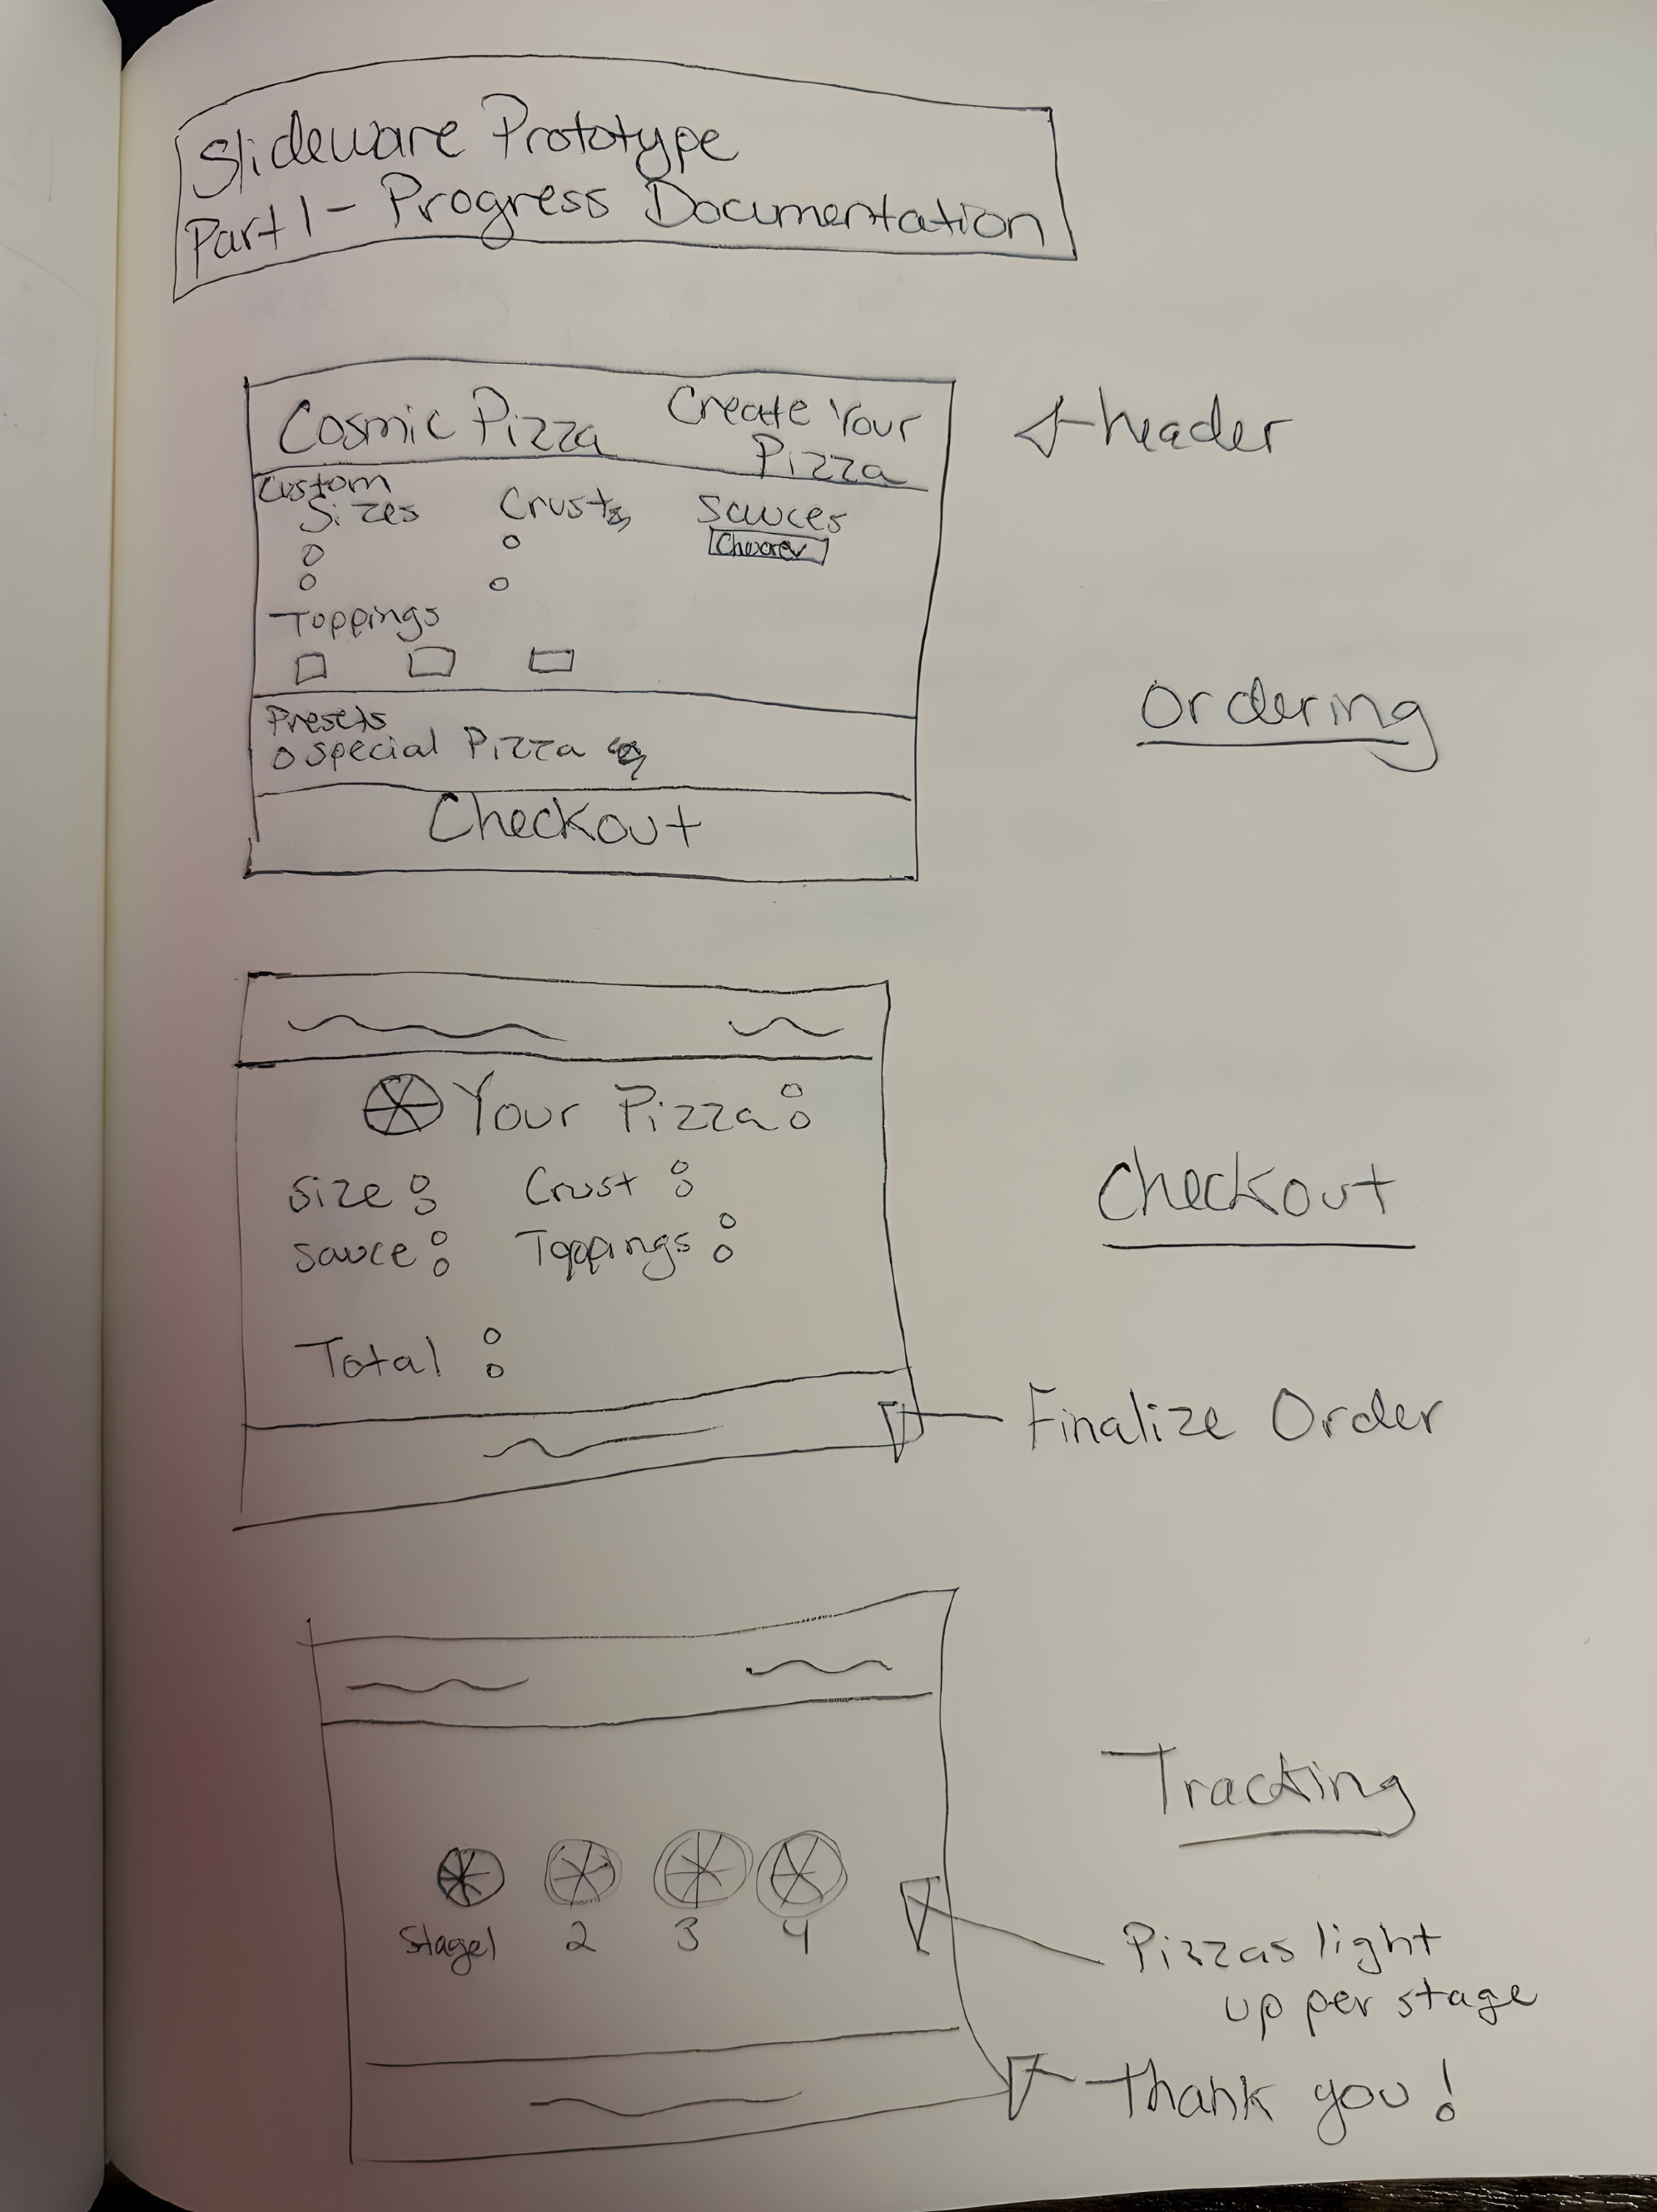 Slideware Prototype
Part 1 - Progress Documentation
Cosmic Pizza
Create Your
Pizza
header
Custom
Sizes Crusts Sauces
Toppings
Ordering
Presets
Special Pizza
Checkout
Your Pizza:
Size: Crust:
Sauce: Toppings:
Checkout
Total:
Finalize Order
Tracking
Stage 1 2 3 4
Pizzas light
up per stage
Thank you!